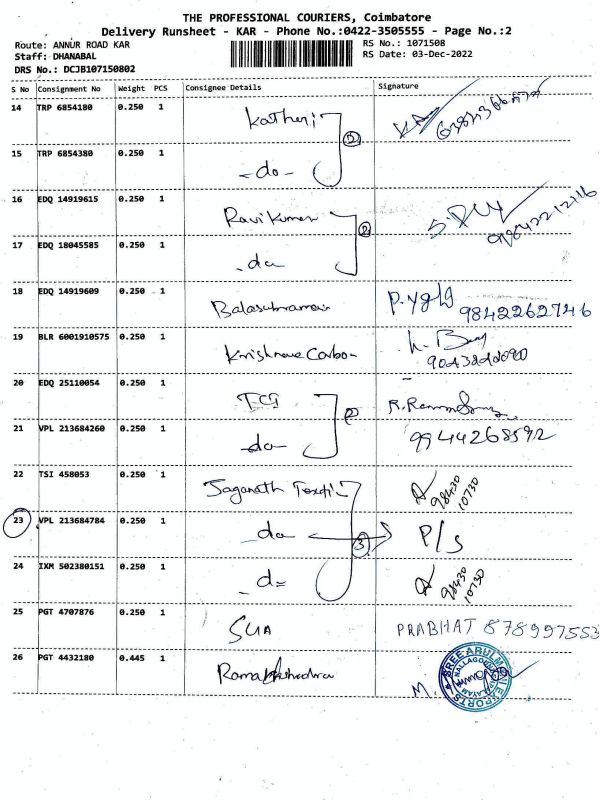 THE PROFESSIONAL COURIERS, Coimbatore
Delivery Runsheet - KAR - Phone No.:0422-3505555 - Page No.:2
Route: ANNUR ROAD KAR RS No.: 1071508
Staff: DHANABAL RS Date: 03-Dec-2022
DRS No.: DCJB107150802
S No Consignment No Weight PCS Consignee Details Signature
14 TRP 6854180 0.250 1 Katheri
2
15 TRP 6854380 0.250 1 -do-
16 EDQ 14919615 0.250 1 Ravikumar
2
17 EDQ 18045585 0.250 1 -do
18 EDQ 14919609 0.250 1 Balasubramani 9842262746
19 BLR 6001910575 0.250 1 Krrishnave Carbo-
20 EDQ 25110054 0.250 1 TCI
2
21 VPL 213684260 0.250 1 -do- 9944268592
22 TSI 458053 0.250 1 Jaganath 98430
10730
23 VPL 213684784 0.250 1 -do 3 P/s
24 IXM 502380151 0.250 1 -d= 98430
10730
25 PGT 4707876 0.250 1 SUA PRABHAT 878997553
26 PGT 4432180 0.445 1 M.
SREE ARUL